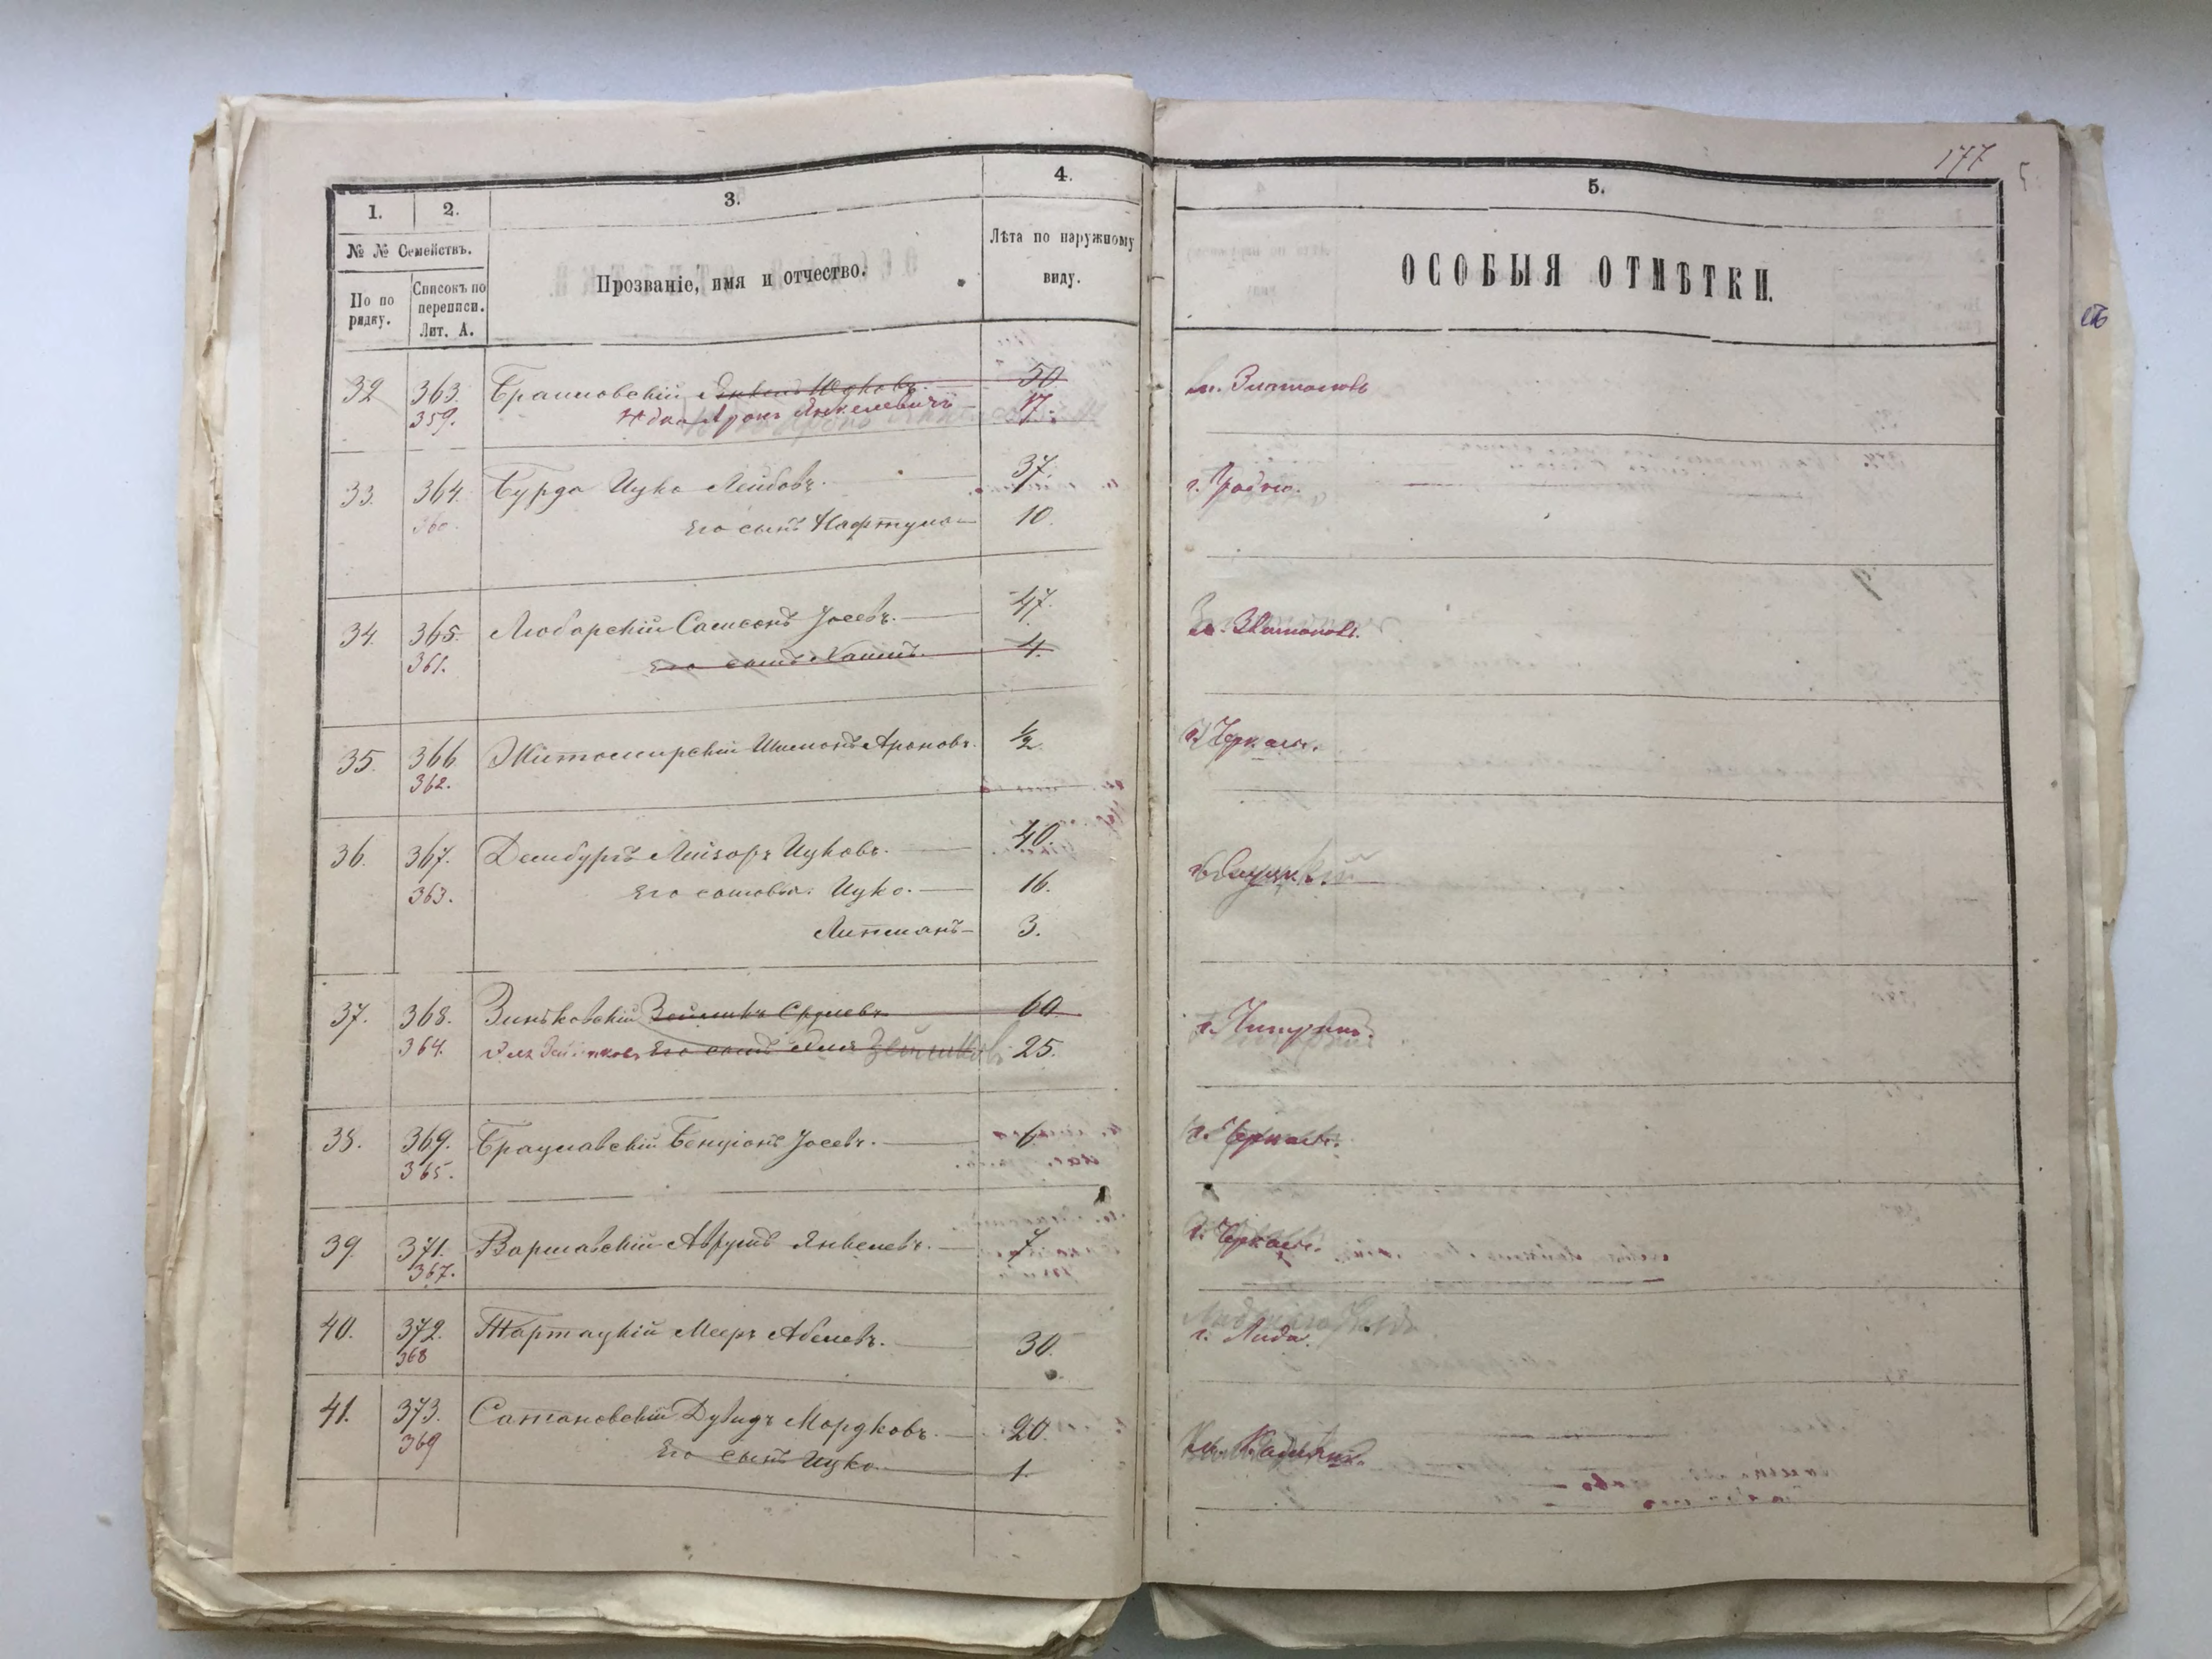 177
1. 2. 3. 4. 5.
№ № Семействъ.
По порядку.
Списокъ по переписи. Лит. А.
Прозваніе, имя и отчество.
Лѣта по наружному виду.
ОСОБЫЯ ОТМѢТКИ.
32 363. Браиловскій Янкель Юдковъ. 50 м. Златополь
359. Аронъ Янкелевичъ 17.
33. 364. Бурда Ицко Лейбовъ. 37. г. Гродно.
360. Его сынъ Нафтула 10.
34. 365. Любарскій Самсонъ Іосевъ. 47. м. Златополь.
361. Его сынъ Хаимъ. 4.
35. 366 Житомирскій Шимонъ Ароновъ. ½ г. Черкасы.
362.
36. 367. Дембургъ Лейзоръ Ицковъ. 40.
363. Его сыновья: Ицко. 16.
Липманъ 3.
37. 368. Зиньковскій Зейликъ Сруловъ 60 г. Чигиринъ.
364. Его сынъ Зейликовъ 25.
38. 369. Брацлавскій Бенціонъ Іосевъ. 6 г. Черкасы.
365.
39. 371. Варшавскій Аврумъ Янкелевъ. 7 г. Черкасы.
367.
40. 372. Тартацкій Мееръ Абелевъ. 30. г. Лида.
368
41. 373. Сатановскій Дувидъ Мордковъ. 20.
369 Его сынъ Ицко. 1.